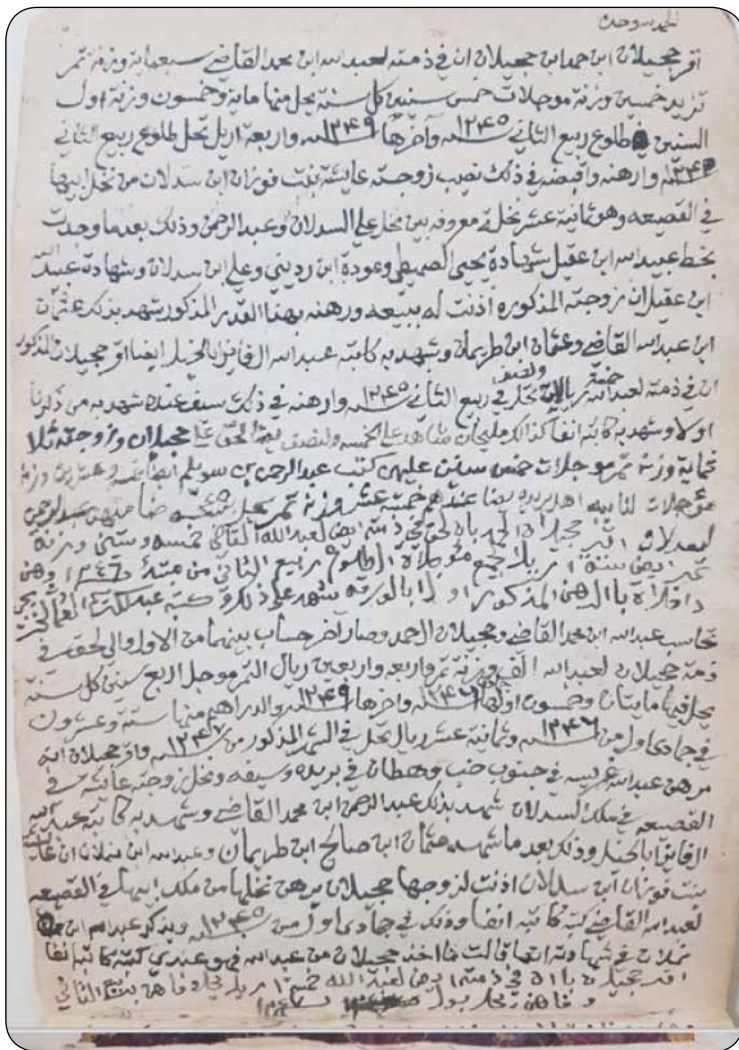 الحمد لله وحده
اقر حجيلان ابن حمد ابن حجيلان ان في ذمته لعبد الله ابن محمد القاضي سبعماية وزنة تمر
تزيد خمسين وزنة موجلات خمس سنين كل سنة يحل منها ماية وخمسون وزنة اول
السنين طلوع ربيع الثاني ١٢٤٥ وآخرها ١٢٤٩ واربعة اريل تحل طلوع ربيع الثاني
وارهنه واقبضه في ذلك نصيب زوجته عايشة بنت فوزان ابن سدلان من نخل ابيها
في القصيعه وهو ثمانية عشر نخلة معروفه بين نخل علي السدلان وعبد الرحمن وذلك بعد ما وجدت
بخط عبيد الله ابن عقيل شهادة يحيى الصميطي وعودة ابن رديني وعلي ابن سدلان وشهادة عبيد الله
ابن عقيل ان زوجته المذكوره اذنت له ببيعه ورهنه بهذا القدر المذكور شهد بذلك عثمان
ابن عبد الله القاضي وعثمان ابن طريمان وشهد به كاتبه عبد الله الرفايز ابا الخيل ايضا اقر حجيلان المذكور
ان في ذمته لعبد الله خمسة ريالات ونصف تحل في ربيع الثاني ١٢٤٥ وارهنه في ذلك سيف عنده شهد به من ذكرنا
اولا وشهد به كاتبه انفا كذالك شاهد على الخمسه والنصف حجيلان وزوجته ثلا
ثماية وزنة تمر موجلات خمس سنين عليهن كتب عبد الرحمن بن سويلم ايضا خمسة وعشرين وزنة
مؤجلات ايضا عندهم خمسة عشر وزنة تمر يحل عبد الرحمن
السدلان اقر حجيلان الحمد بان لحق في ذمته ايضا لعبد الله القاضي خمسه وستين وزنة
تمر ايضن ستة اريل الجميع مؤجلات الى طلوع ربيع الثاني من سنة ١٢٤٦ وهن
داخلات بالرهن المذكور اولا بالورقه شهد على ذلك وكتبه عبد الله
تحاسب عبد الله ابن محمد القاضي وحجيلان الحمد وصار آخر حساب بينهما من الاول والى لحق في
ذمة حجيلان لعبد الله الف وزنة تمر واربعه واربعين ريال التمر موجل اربع سنين كل سنة
يحل فيها مايتان وخمسون اولها ١٢٤٦ وآخرها ١٢٤٩ والدراهم منها ستة وعشرون
في جمادى اول من ١٢٤٦ وثمانية عشر ريال تحل في الشهر المذكور من ١٢٤٧ واقر حجيلان انه
مرهن عبد الله غريسه في جنوب خب وهطان في بريده وسيفه ونخل زوجته عايشه في
القصيعه في ملك السدلان شهد بذلك عبد الرحمن ابن محمد القاضي وشهد به كاتبه عبد الله
الرفايز ابا الخيل وذلك بعد ما شهد عثمان ابن صالح ابن طريمان وعبد الله ابن نملان ان عايشه
بنت فوزان ابن سدلان اذنت لزوجها حجيلان يرهن نخلها من ملك ابيها في القصيعه
لعبد الله القاضي كتبه كاتبه انفا وذلك في جمادى اول من ١٢٤٥ ويذكر عبد الله ابن
نملان في شهادته انها قالت ما اخذ حجيلان من عبد الله فهو عندي كتبه كاتبه انفا
اقر حجيلان بان في ذمته ايضن لعبد الله خمسة اريل